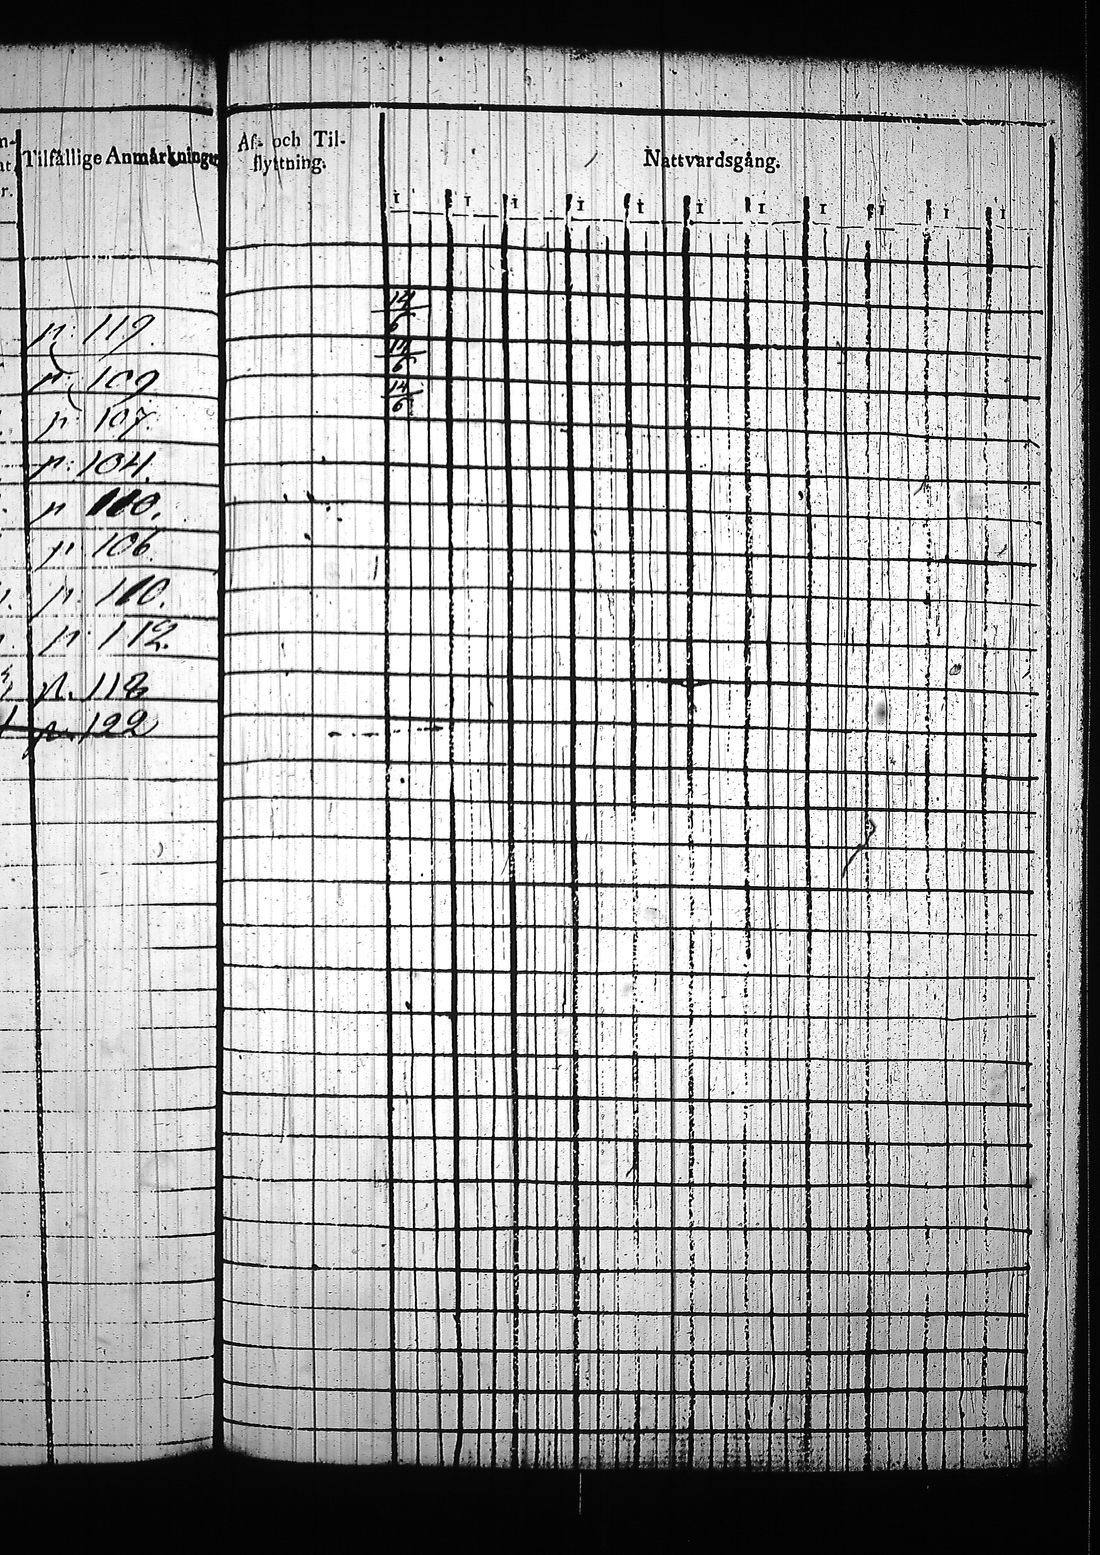 Tilfällige Anmärkningar
p. 119.
p. 109
p. 107.
p. 104.
p 110.
p. 106
p. 110.
p. 112.
p. 118
p. 122
Af- och Til-
flyttning.
Nattvardsgång.
1 1 1 1 1 1 1 1 1 1 1
14/6
14/6
14/6